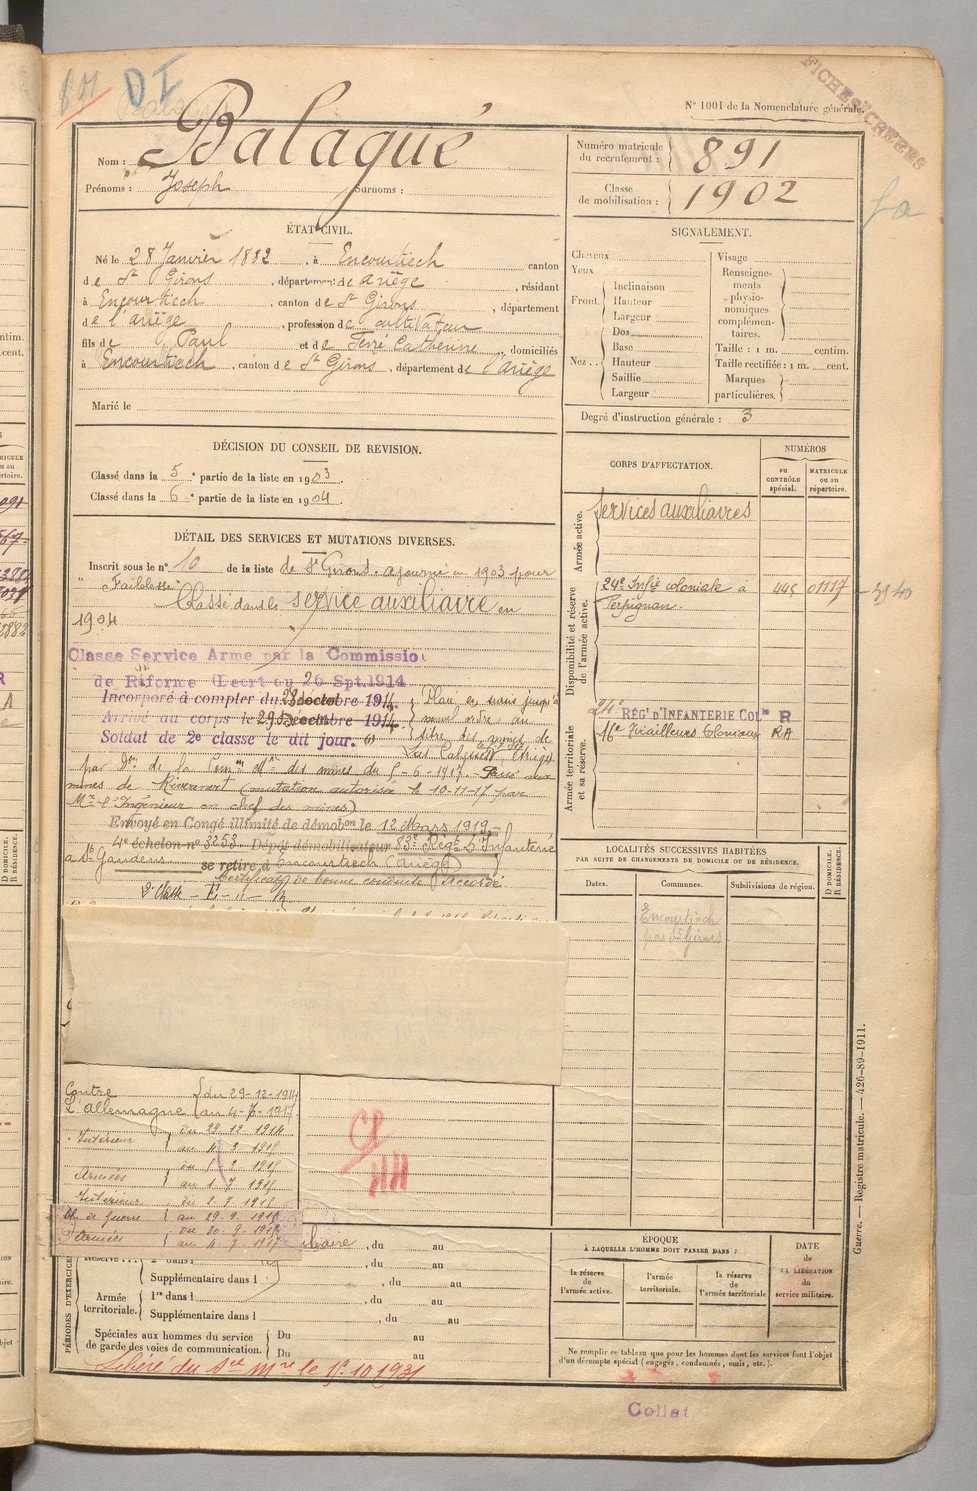 801
DI
FICHES CREEES
N° 1001 de la Nomenclature générale.
Nom : Balagué
Prénoms : Joseph Surnoms :
Numéro matricule du recrutement : 891
Classe de mobilisation : 1902
ÉTAT CIVIL.
Né le 28 Janvier 1882, à Encourtiech canton
de St Girons, département de Ariège, résidant
à Encourtiech, canton de St Girons, département
de l'ariège, profession de cultivateur
fils de Paul et de Ferré Catherine, domiciliés
à Encourtiech, canton de St Girons, département de l'ariège
Marié le
SIGNALEMENT.
Cheveux
Yeux
Front. Inclinaison
Hauteur
Largeur
Nez. Dos
Base
Hauteur
Saillie
Largeur
Visage
Renseignements physionomiques complémentaires.
Taille : 1 m. centim.
Taille rectifiée : 1 m. cent.
Marques particulières.
Degré d'instruction générale : 3
DÉCISION DU CONSEIL DE REVISION.
Classé dans la 5e partie de la liste en 1903.
Classé dans la 6e partie de la liste en 1904.
DÉTAIL DES SERVICES ET MUTATIONS DIVERSES.
Inscrit sous le n° 10 de la liste de St Girons. ajourné en 1903 pour
"Faiblesse"
Classé dans le service auxiliaire en
1904
Classe Service Arme par la Commissio
de Réforme (Decrt du 26 Spt.1914
Incorporé à compter du 28 décembre 1914.
Arrivé au corps le 29 Décembre 1914.
Soldat de 2e classe le dit jour.
Placé en sursis jusqu'à
nouvel ordre au
titre des mines de
par Don de la Comon Mre des mines du 5-6-1917. Passé aux
mines de Rivernert (mutation autorisée le 10-11-17 par
Mr l'Ingénieur en chef des mines)
Envoyé en Congé illimité de démobon le 12 Mars 1919
4e échelon n° 3253 Dépôt démobilisateur 83e Régt D'Infanterie
à St Gaudens se retire à Encourtiech (Ariège)
Certificat de bonne conduite Accordé.
CORPS D'AFFECTATION.
NUMÉROS
au CONTRÔLE spécial.
MATRICULE ou au répertoire.
Armée active.
Services auxiliaires
Disponibilité et réserve de l'armée active.
24e Infie coloniale à 445 01117
Perpignan.
Armée territoriale et sa réserve.
24e RÉGt D'INFANTERIE COLle R
16e Tirailleurs Coloniaux RA
LOCALITÉS SUCCESSIVES HABITÉES
PAR SUITE DE CHANGEMENTS DE DOMICILE OU DE RÉSIDENCE.
Dates. Communes. Subdivisions de région. D DOMICILE. R RÉSIDENCE.
Encourtiech
par St Girons
Contre du 29-12-1914
L'allemagne au 4-7-1917
Intérieur du 29 12 1914
Armées
Intérieur du 2-7-1916
Bl. de Guerre au 29-9-1916
Armées du 30-9-1916
au 4-7-1917
iliaire, du au
Réserve
Supplémentaire dans l , du au
PÉRIODES D'EXERCICES
Armée territoriale. 1re dans l , du au
Supplémentaire dans l , du au
Spéciales aux hommes du service
de garde des voies de communication. Du au
Du au
Libéré du Sce Mre le 15.10 1931
ÉPOQUE
À LAQUELLE L'HOMME DOIT PASSER DANS :
la réserve de l'armée active.
l'armée territoriale.
la réserve de l'armée territoriale
DATE de LA LIBÉRATION du service militaire.
Ne remplir ce tableau que pour les hommes dont les services font l'objet
d'un décompte spécial (engagés, condamnés, omis, etc.).
Collat
Guerre. — Registre matricule. — 426-89-1911.